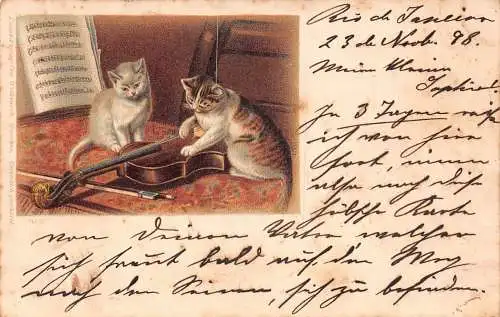 Rio de Janeiro
23 de Novb. 98.
Meine kleine
Sophie!
In 3 Tagen
ist von hier
fort, nimm
also noch diese
hübsche Karte
von Deinem Vater welcher
sich freut bald auf dem Weg
nach den Seinen, sich zu befinden.